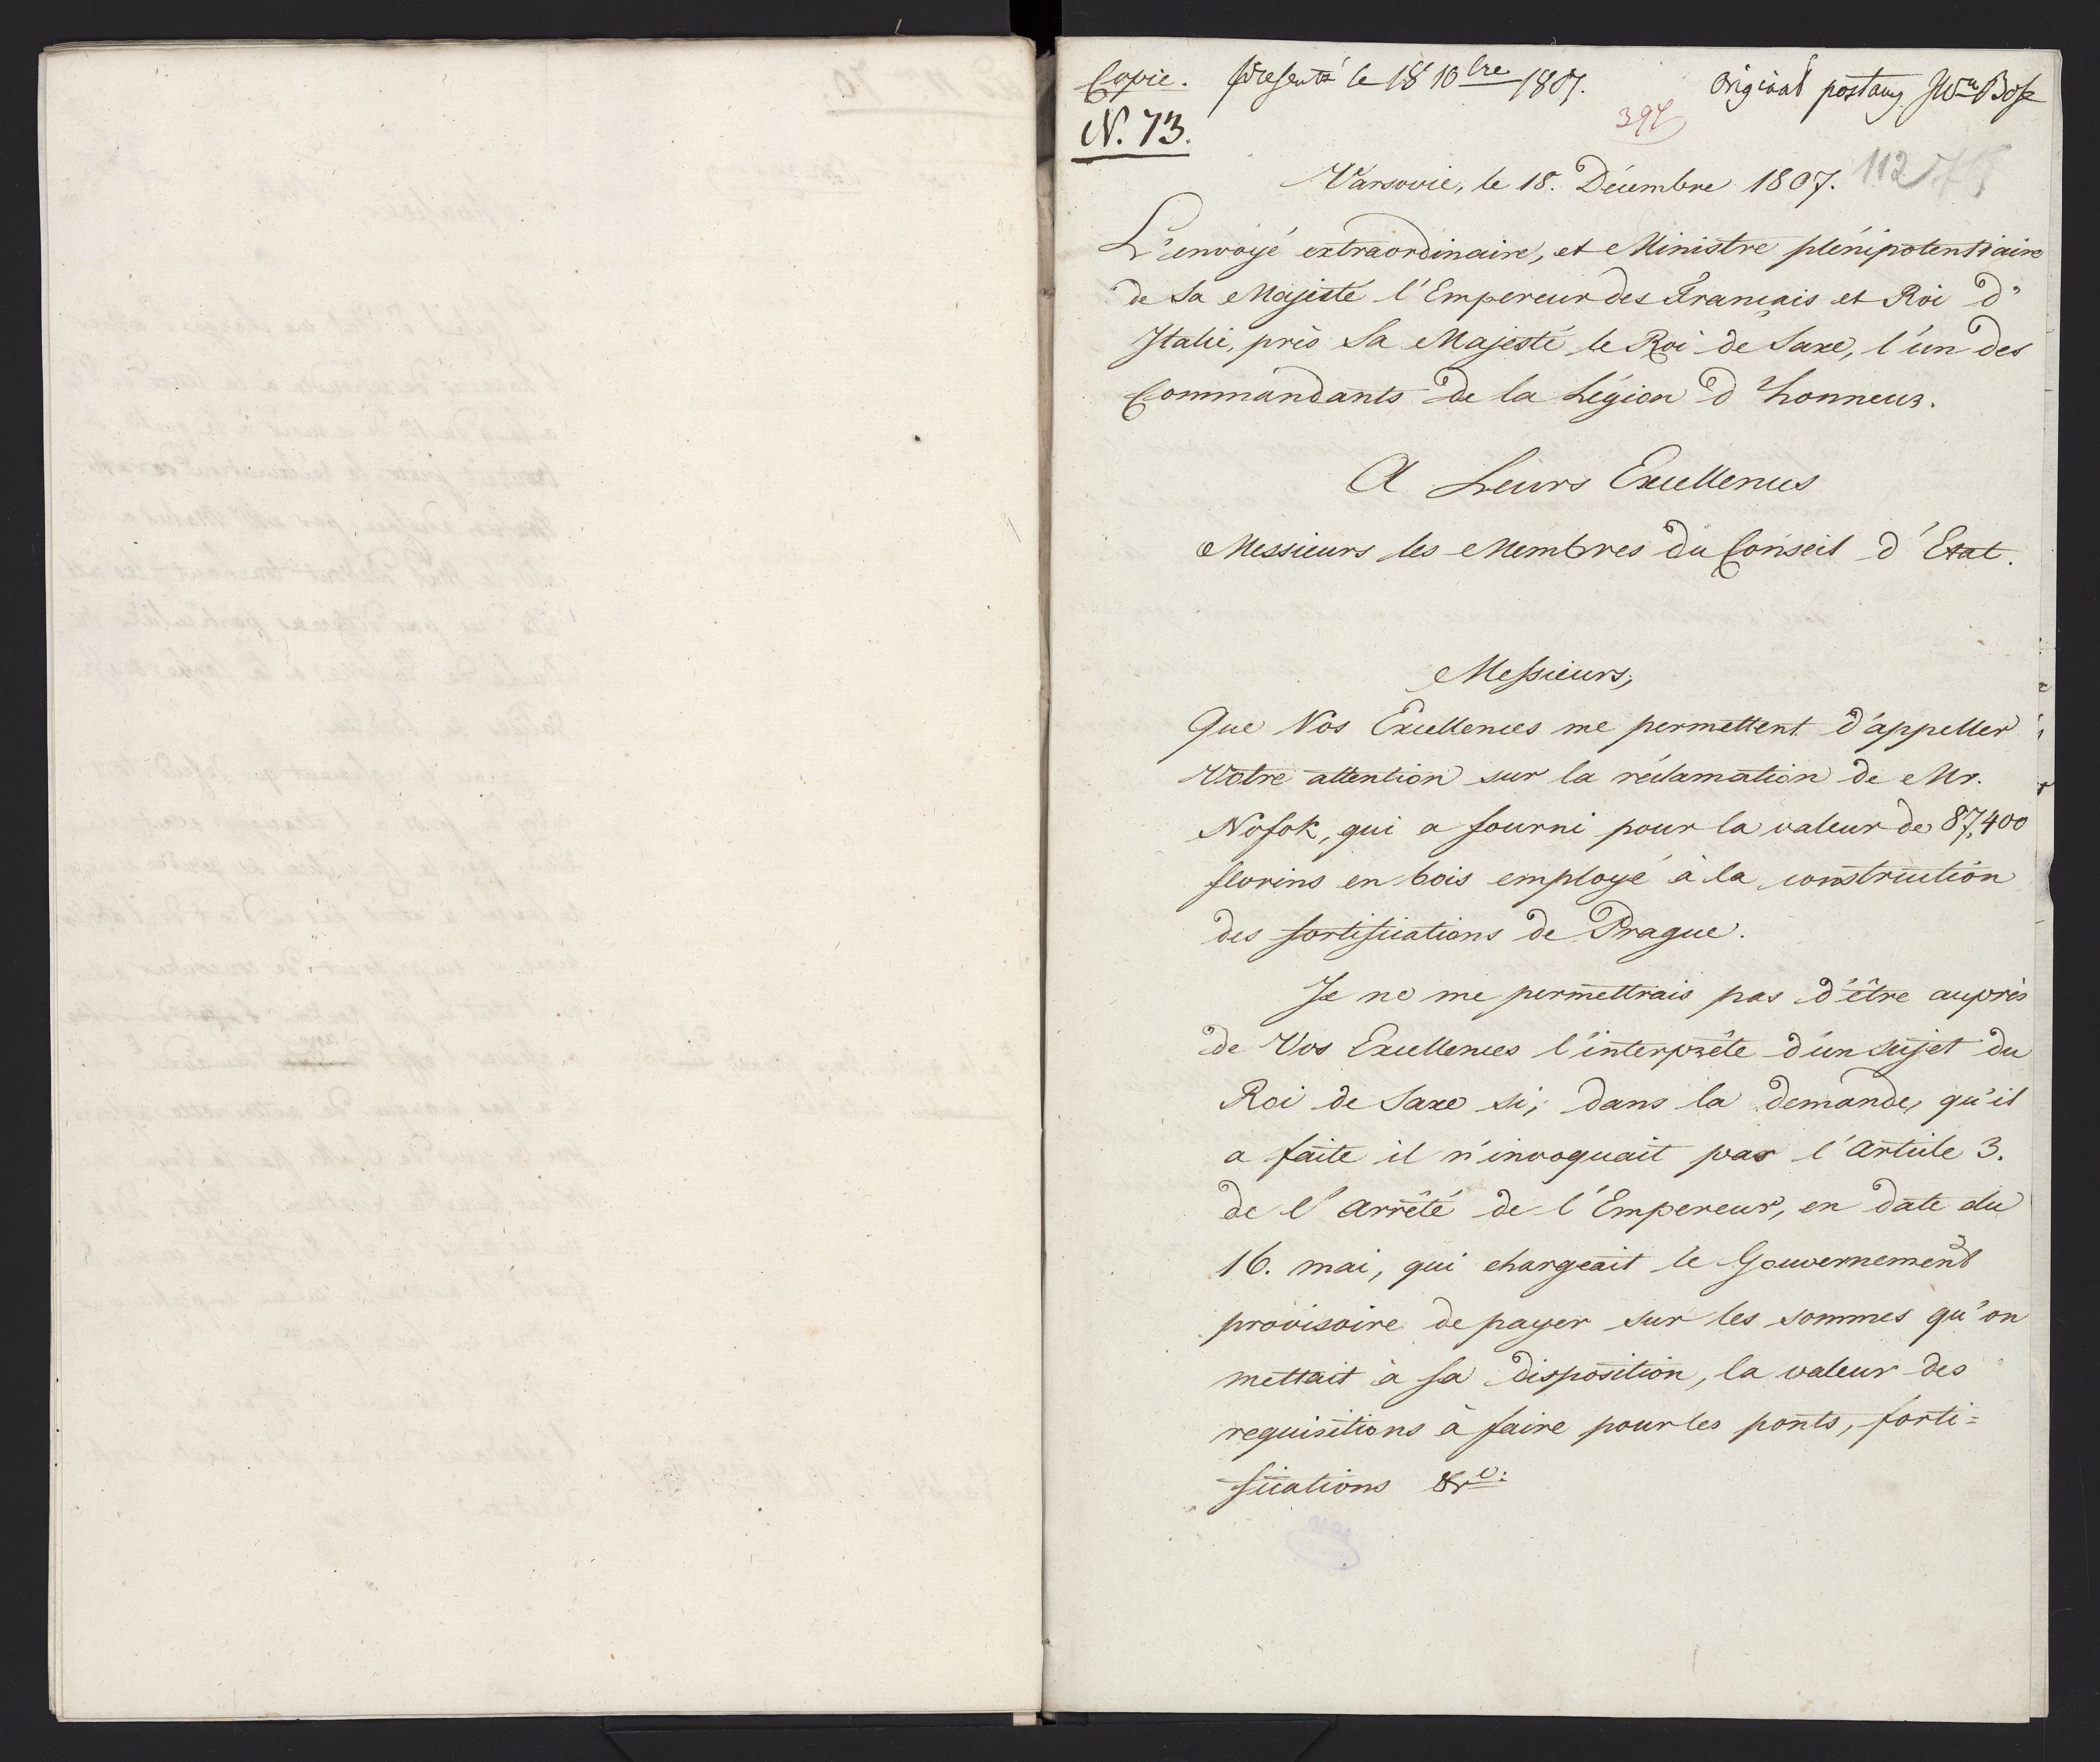 Copie. presenté le 18 10bre 1807. Original
N. 73.
397
Varsovie, le 18. Décembre 1807. 112
L'envoyé extraordinaire, et Ministre plénipotentiaire
de Sa Majesté l'Empereur des Francais et Roi d'
Italie, près Sa Majesté le Roi de Saxe, l'un des
Commandants de la Légion d'honneur.
A Leurs Excellences
Messieurs les Membres du Conseil d'Etat.
Messieurs,
Que Vos Excellences me permettent d'appeller
Votre attention sur la réclamation de Mr.
Nofok, qui a fourni pour la valeur de 87,400
florins en bois employé à la construction
des fortifications de Prague.
Je ne me permettrais pas d'être auprès
de Vos Excellences l'interprête d'un sujet du
Roi de Saxe si, dans la demande, qu'il
a faite il n'invoquait pas l'Article 3.
de l'Arrêté de l'Empereur, en date du
16. mai, qui chargeait le Gouvernement
provisoire de payer sur les sommes qu'on
mettait à sa disposition, la valeur des
requisitions à faire pour les ponts, forti=
fications &c: